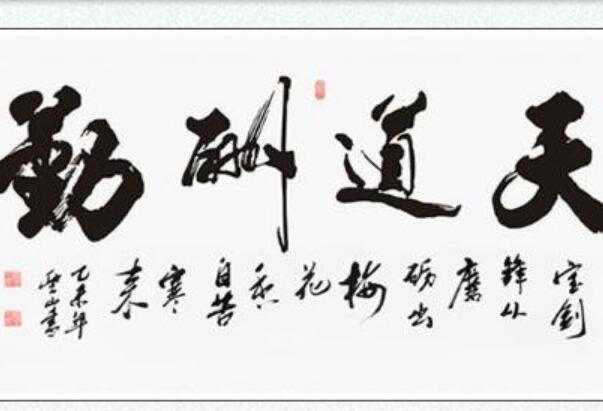 天道酬勤
宝剑锋从磨砺出梅花香自苦寒来
乙未年